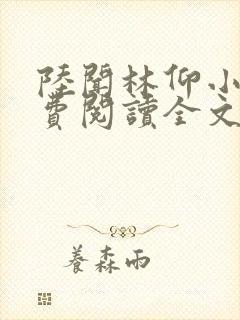 陸聞林仰小
費閱讀全文
養森雨